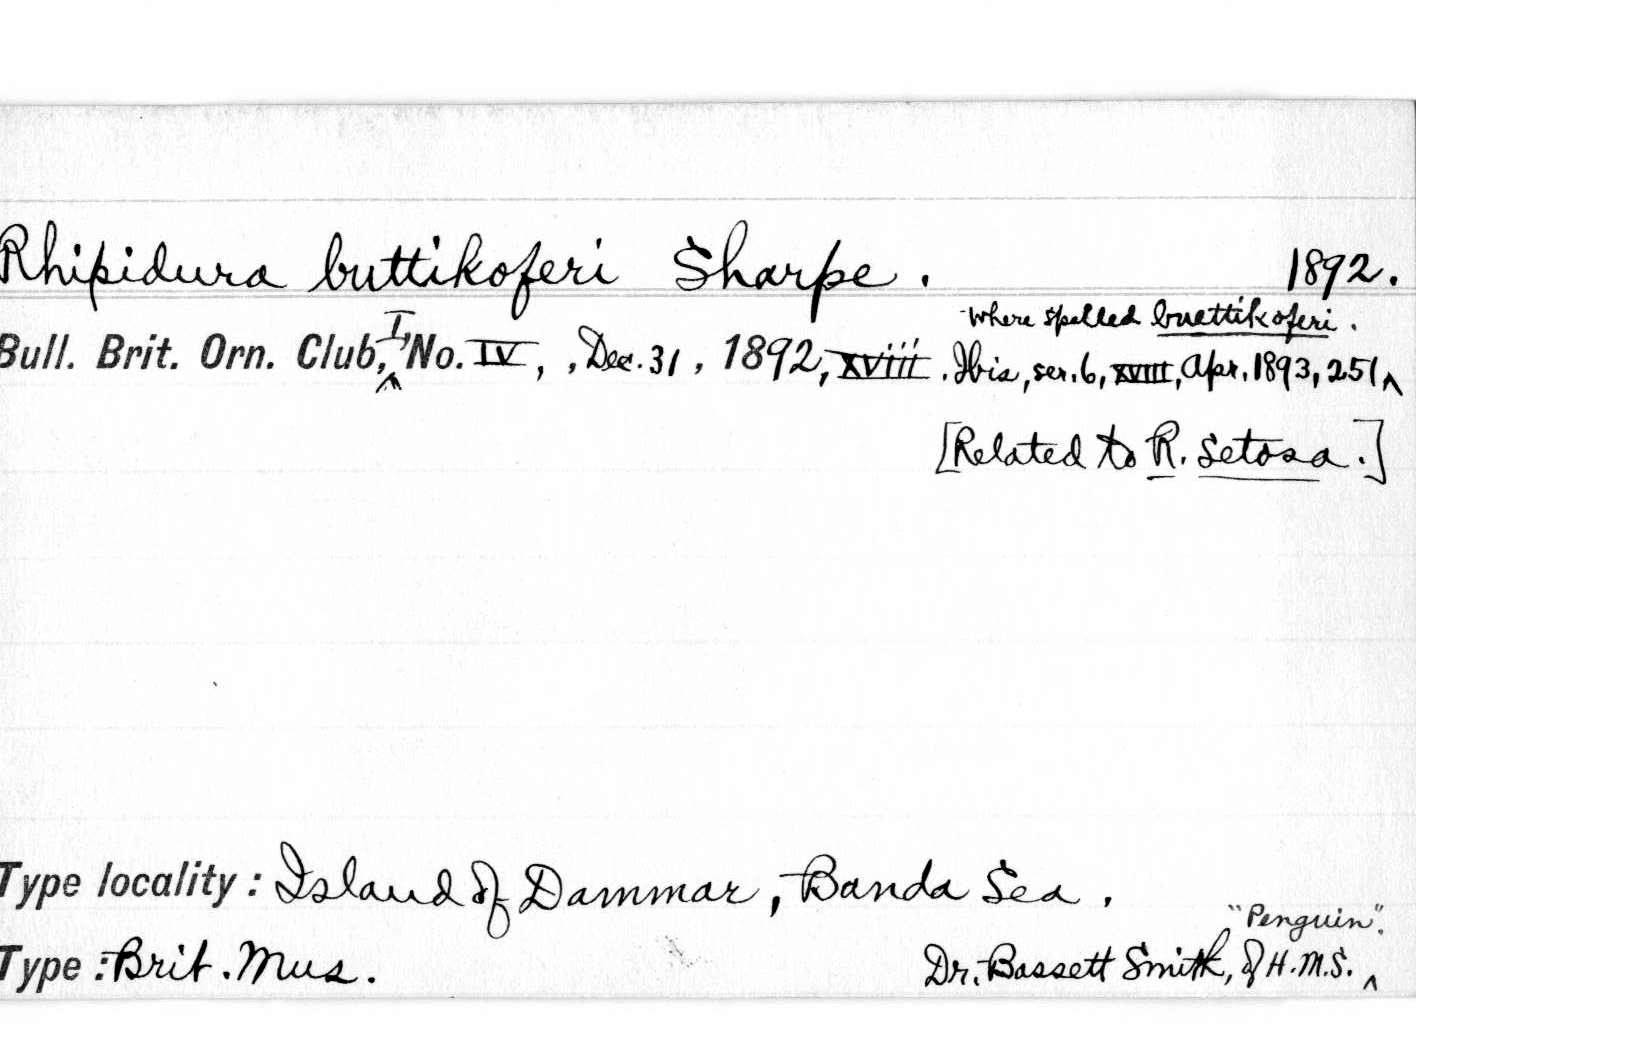 Rhipidura buttikoferi Sharpe. 1892.
where spelled buettikoferi.
Bull. Brit. Orn. Club, I, No. IV, , Dec. 31, 1892, xviii. Ibis, ser. 6, XVIII, Apr. 1893, 251 ^
[Related to R. setosa.]
Type locality: Island of Dammar, Banda Sea.
"Penguin".
Type: Brit. Mus. Dr. Bassett Smith, of H.M.S. ^